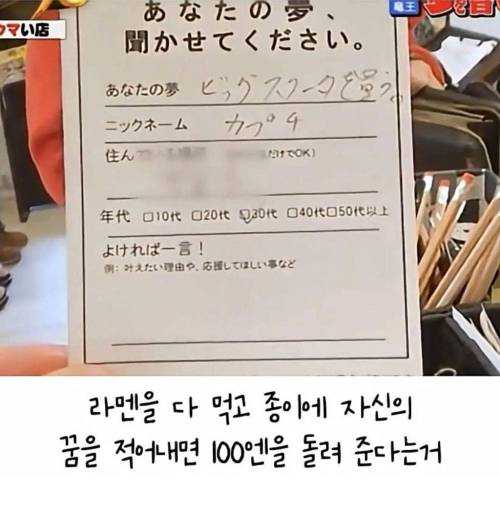 竜王
マい店
あなたの夢、
聞かせてください。
あなたの夢 ビッグスクーターを買う。
ニックネーム カプチ
住ん だけでOK)
年代 □10代 □20代 ☑30代 □40代□50代以上
よければ一言！
例：叶えたい理由や、応援してほしい事など
라멘을 다 먹고 종이에 자신의
꿈을 적어내면 100엔을 돌려 준다는거